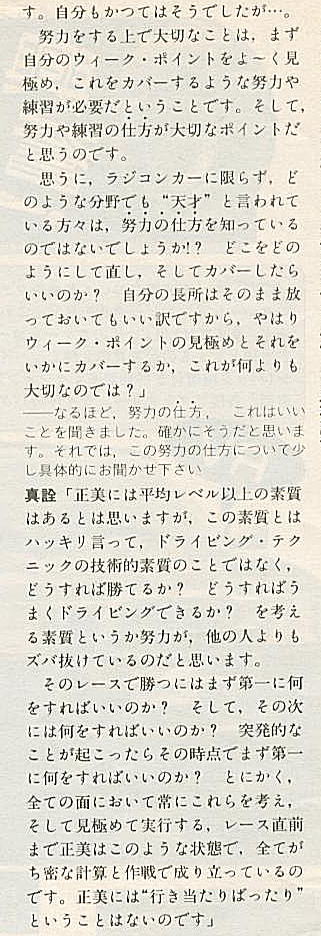 す。自分もかつてはそうでしたが…。
　努力をする上で大切なことは，まず
自分のウィーク・ポイントをよ～く見
極め，これをカバーするような努力や
練習が必要だということです。そして，
努力や練習の仕方が大切なポイントだ
と思うのです。
　思うに，ラジコンカーに限らず，ど
のような分野でも“天才”と言われて
いる方々は，努力の仕方を知っている
のではないでしょうか!?　どこをどの
ようにして直し，そしてカバーしたら
いいのか？　自分の長所はそのまま放
っておいてもいい訳ですから，やはり
ウィーク・ポイントの見極めとそれを
いかにカバーするか，これが何よりも
大切なのでは？」
——なるほど，努力の仕方，　これはいい
ことを聞きました。確かにそうだと思いま
す。それでは，この努力の仕方について少
し具体的にお聞かせ下さい
真詮「正美には平均レベル以上の素質
はあるとは思いますが，この素質とは
ハッキリ言って，ドライビング・テク
ニックの技術的素質のことではなく，
どうすれば勝てるか？　どうすればう
まくドライビングできるか？　を考え
る素質というか努力が，他の人よりも
ズバ抜けているのだと思います。
　そのレースで勝つにはまず第一に何
をすればいいのか？　そして，その次
には何をすればいいのか？　突発的な
ことが起こったらその時点でまず第一
に何をすればいいのか？　とにかく，
全ての面において常にこれらを考え，
そして見極めて実行する，レース直前
まで正美はこのような状態で，全てが
ち密な計算と作戦で成り立っているの
です。正美には“行き当たりばったり”
ということはないのです」